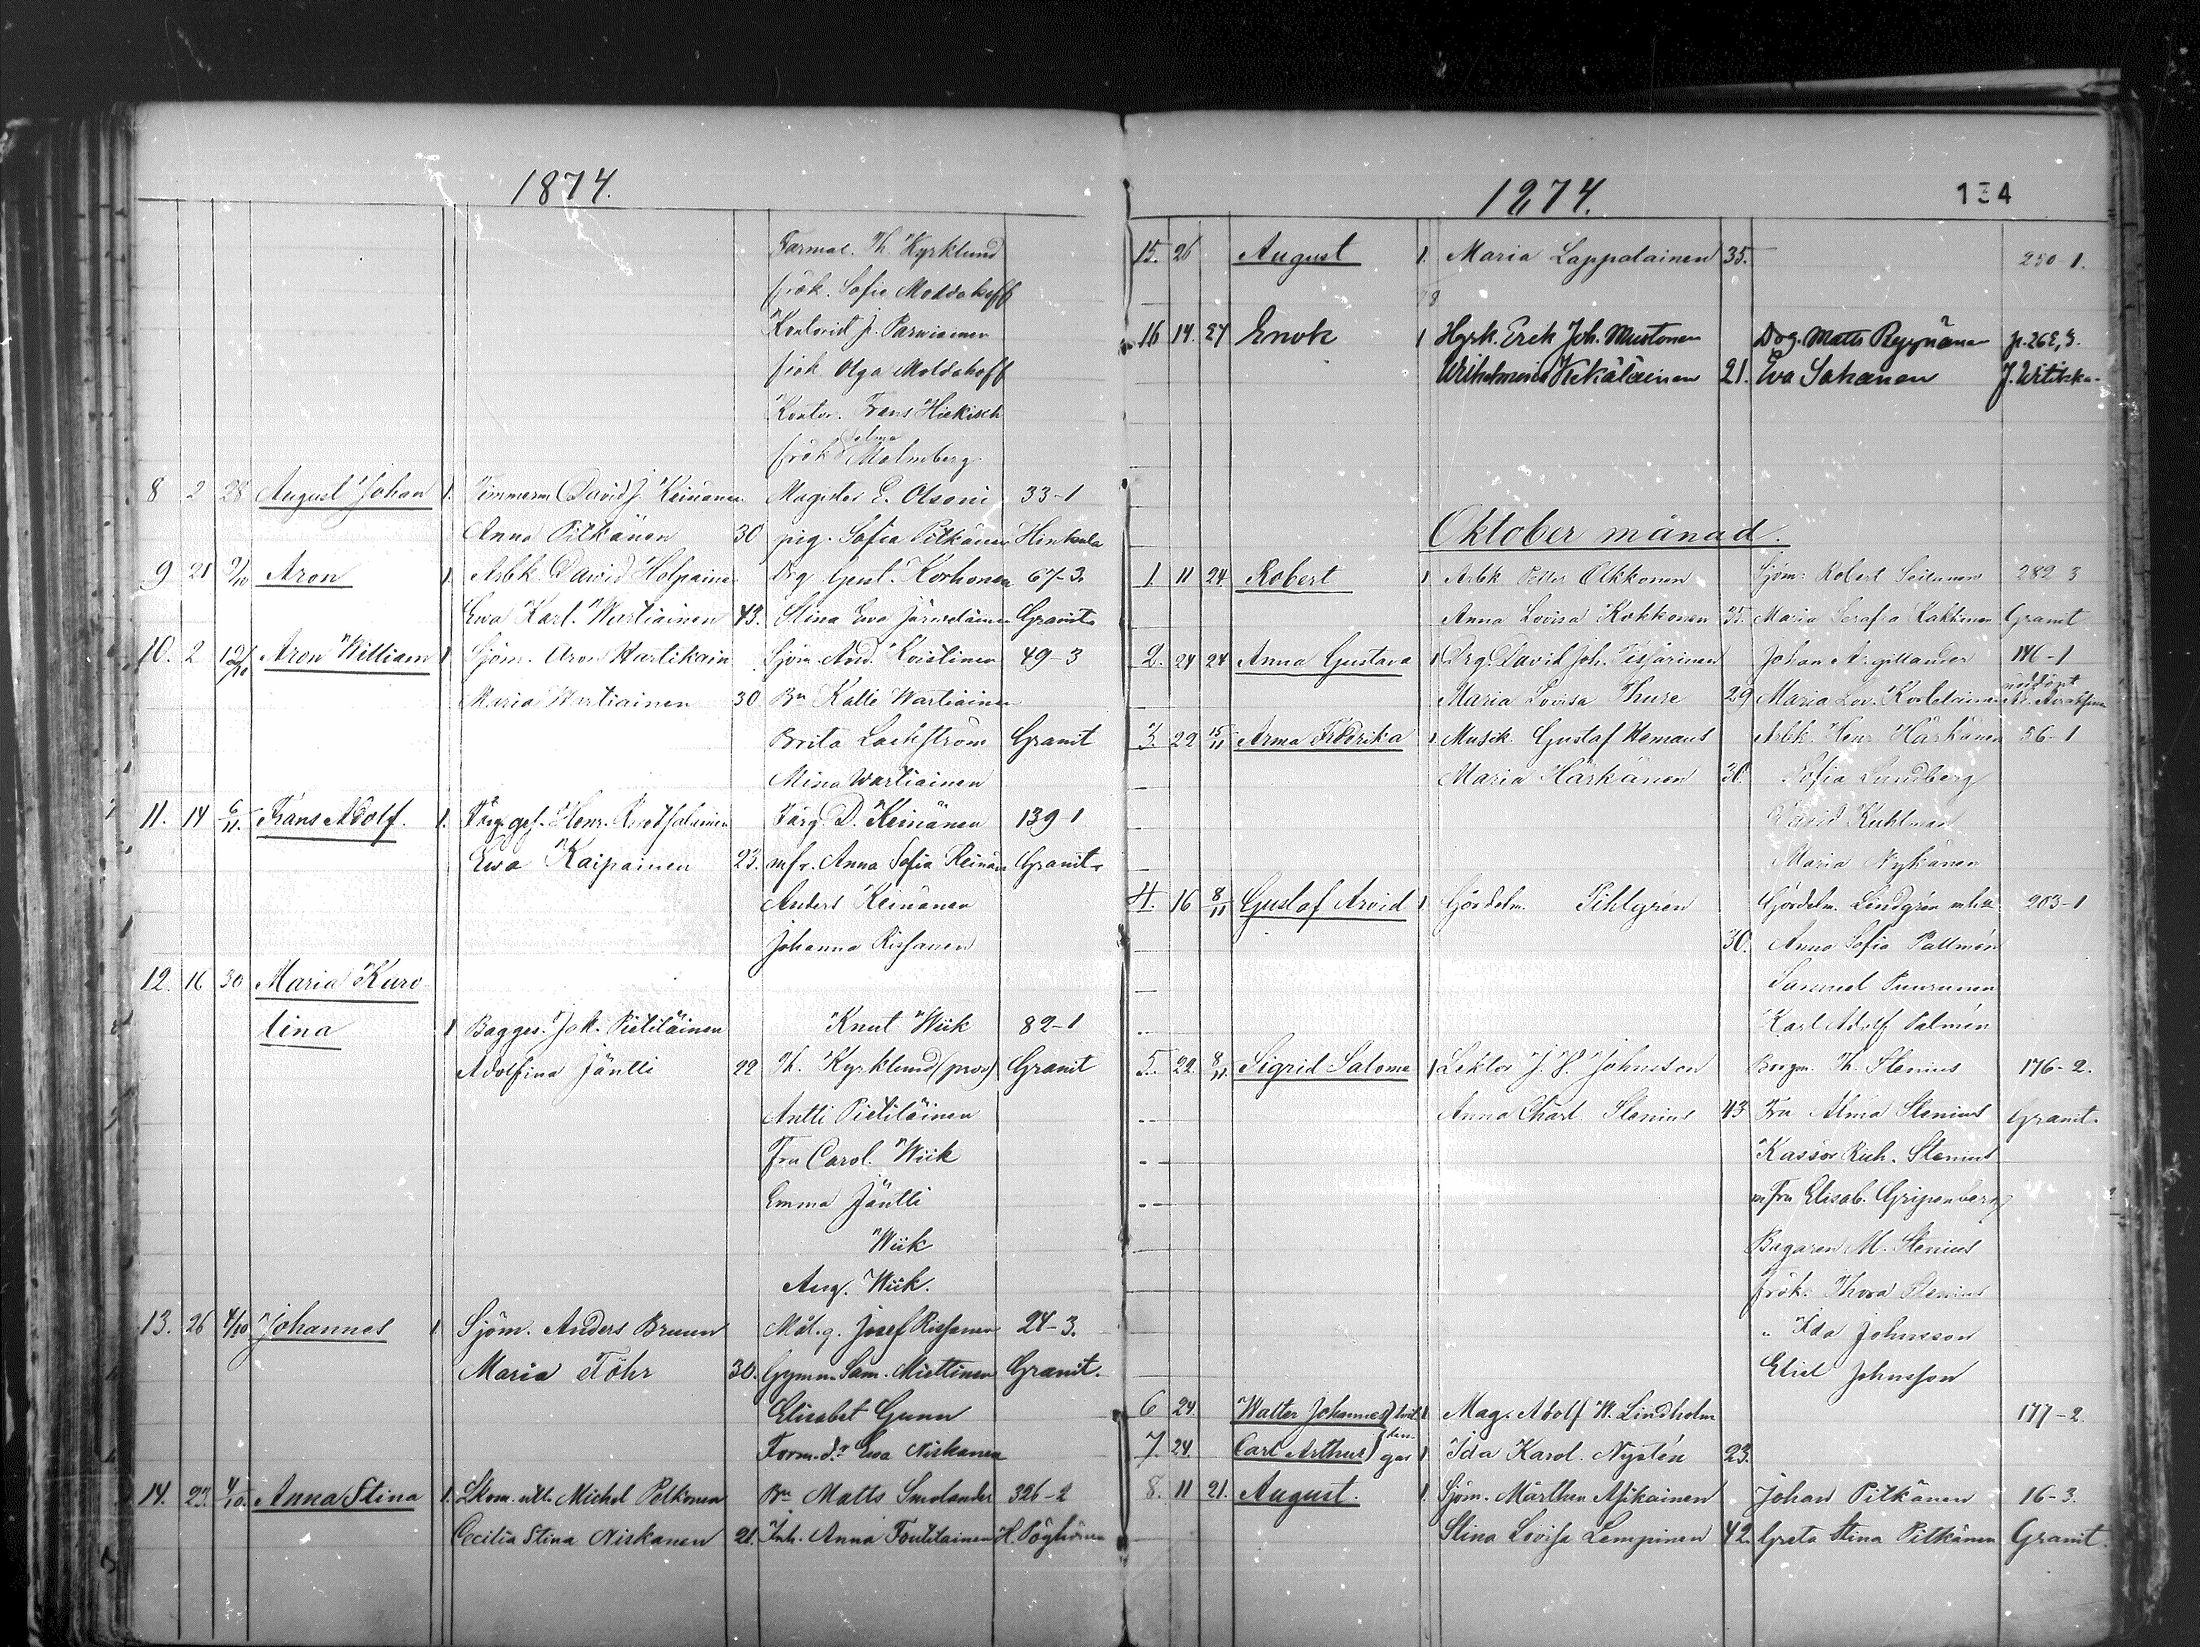 1874.
Farmac. Th. Kyrklund
frök. Sofie Moldakoff
Kontorist J. Parviainen
frök Olga Moldakoff
Kontor. Frans Hickisch
Selma
frök Malmberg
8 2 28 August Johan 1. Timmerm. David J. Keinänen Magister E. Olsoni 33-1
Anna Pitkänen 30 pig. Sofia Pitkänen Hinkula
9 21 2/10 Aron 1 Arbk. David Holpainen Drg Gust. Korhonen 67-3.
Eva Karl. Wartiainen 43. Stina Eva Granit
10. 2 12/10 Aron William 1 Sjöm. Aron Hartikain Sjöm. And. Koistinen 49-3
Maria Wartiainen 30 Bn Kalle Wartiainen
Brita Lackström Granit
Mina Wartiainen
11. 14 6/11. Frans Adolf. 1. Färg. ges. Henr. Färg. D. Keinänen 139-1
Ewa Kaipainen 23. mfr. Anna Sofia Keinän Granit.
Anders Keinänen
Johanna Rissanen
12. 16 30 Maria Karo
lina 1 Bagges. Jak. Pietiläinen Knut Wiik 82-1
Adolfina Jäntti 22 Th. Kyrklund (prov) Granit
Antti Pietiläinen
Fru Carol. Wiik
Emma Jäntti
Wiik
Aug. Wiik.
13. 26 4/10 Johannes 1 Sjöm. Anders Bruun Mål.g. Josef Rissanen 24-3.
Maria Föhr 30. Gymn. Sam. Miettinen Granit.
Elisabet Gunn
Form.d:r Eva Niskanen
14. 23 4/10. Anna Stina 1. Skom. Michel Pelkonen Bn Matts Smolander 326-2
Cecilia Stina Niskanen 21. Inh. Anna H. Pöyhönen
1874. 134
15. 26 August 1. Maria Lappalainen 35. 250-1.
16 14. 27 Enok 1 Hyrk. Erek Joh. Mustonen Drg. Matts Ryynänen p. 262,3.
Wilhelmina Kekäläinen 21. Eva Sahanen
Oktober månad.
1. 11 24 Robert 1 Arbk Petter Olkkonen Sjöm. Robert 282 3
Anna Lovisa Kokkonen 35. Maria Serafia Kokkonen Granit
2. 24 24 Anna Gustava 1 Drg. David Joh. Johan Argillander 146-1
Maria Lovisa Thure 29 Maria Lov. nöddöpt
3. 22 15/11 Anna Fredrika 1 Musik. Gustaf Hemans Arbk. Henr. Härkänen 56-1
Maria Härkänen 30. Sofia Lundberg
David Kuhlman
Maria Nykänen
4. 16 8/11 Gustaf Arvid 1 Gördelm. Pihlgren Gördelm. Lindgrén 203-1
30. Anna Sofia Pallmén
Samuel Puurunen
Karl Adolf Palmén
5. 22. 8/11. Sigrid Salome 1 Lektor J. H. Johnsson Borgm. Th. Stenius 176-2.
Anna Charl Stenius 43 Fru Alma Stenius Granit.
Kassör Rich. Stenius
m Fru Elisab. Gripenberg
Bagaren M. Stenius
frök. Thora Stenius
" Ida Johnsson
Eliel Johnsson
6 24 Walter Johannes tvil 1 Mag. Adolf W. Lindholm 177-2.
7. 24. Carl Arthur lin-gar 1. Ida Karol. Nystén 23.
8. 11 21. August. 1. Sjöm. Mårthen Asikainen Johan Pitkänen 16-3.
Stina Lovisa Lempinen 42. Greta Stina Pitkänen Granit.